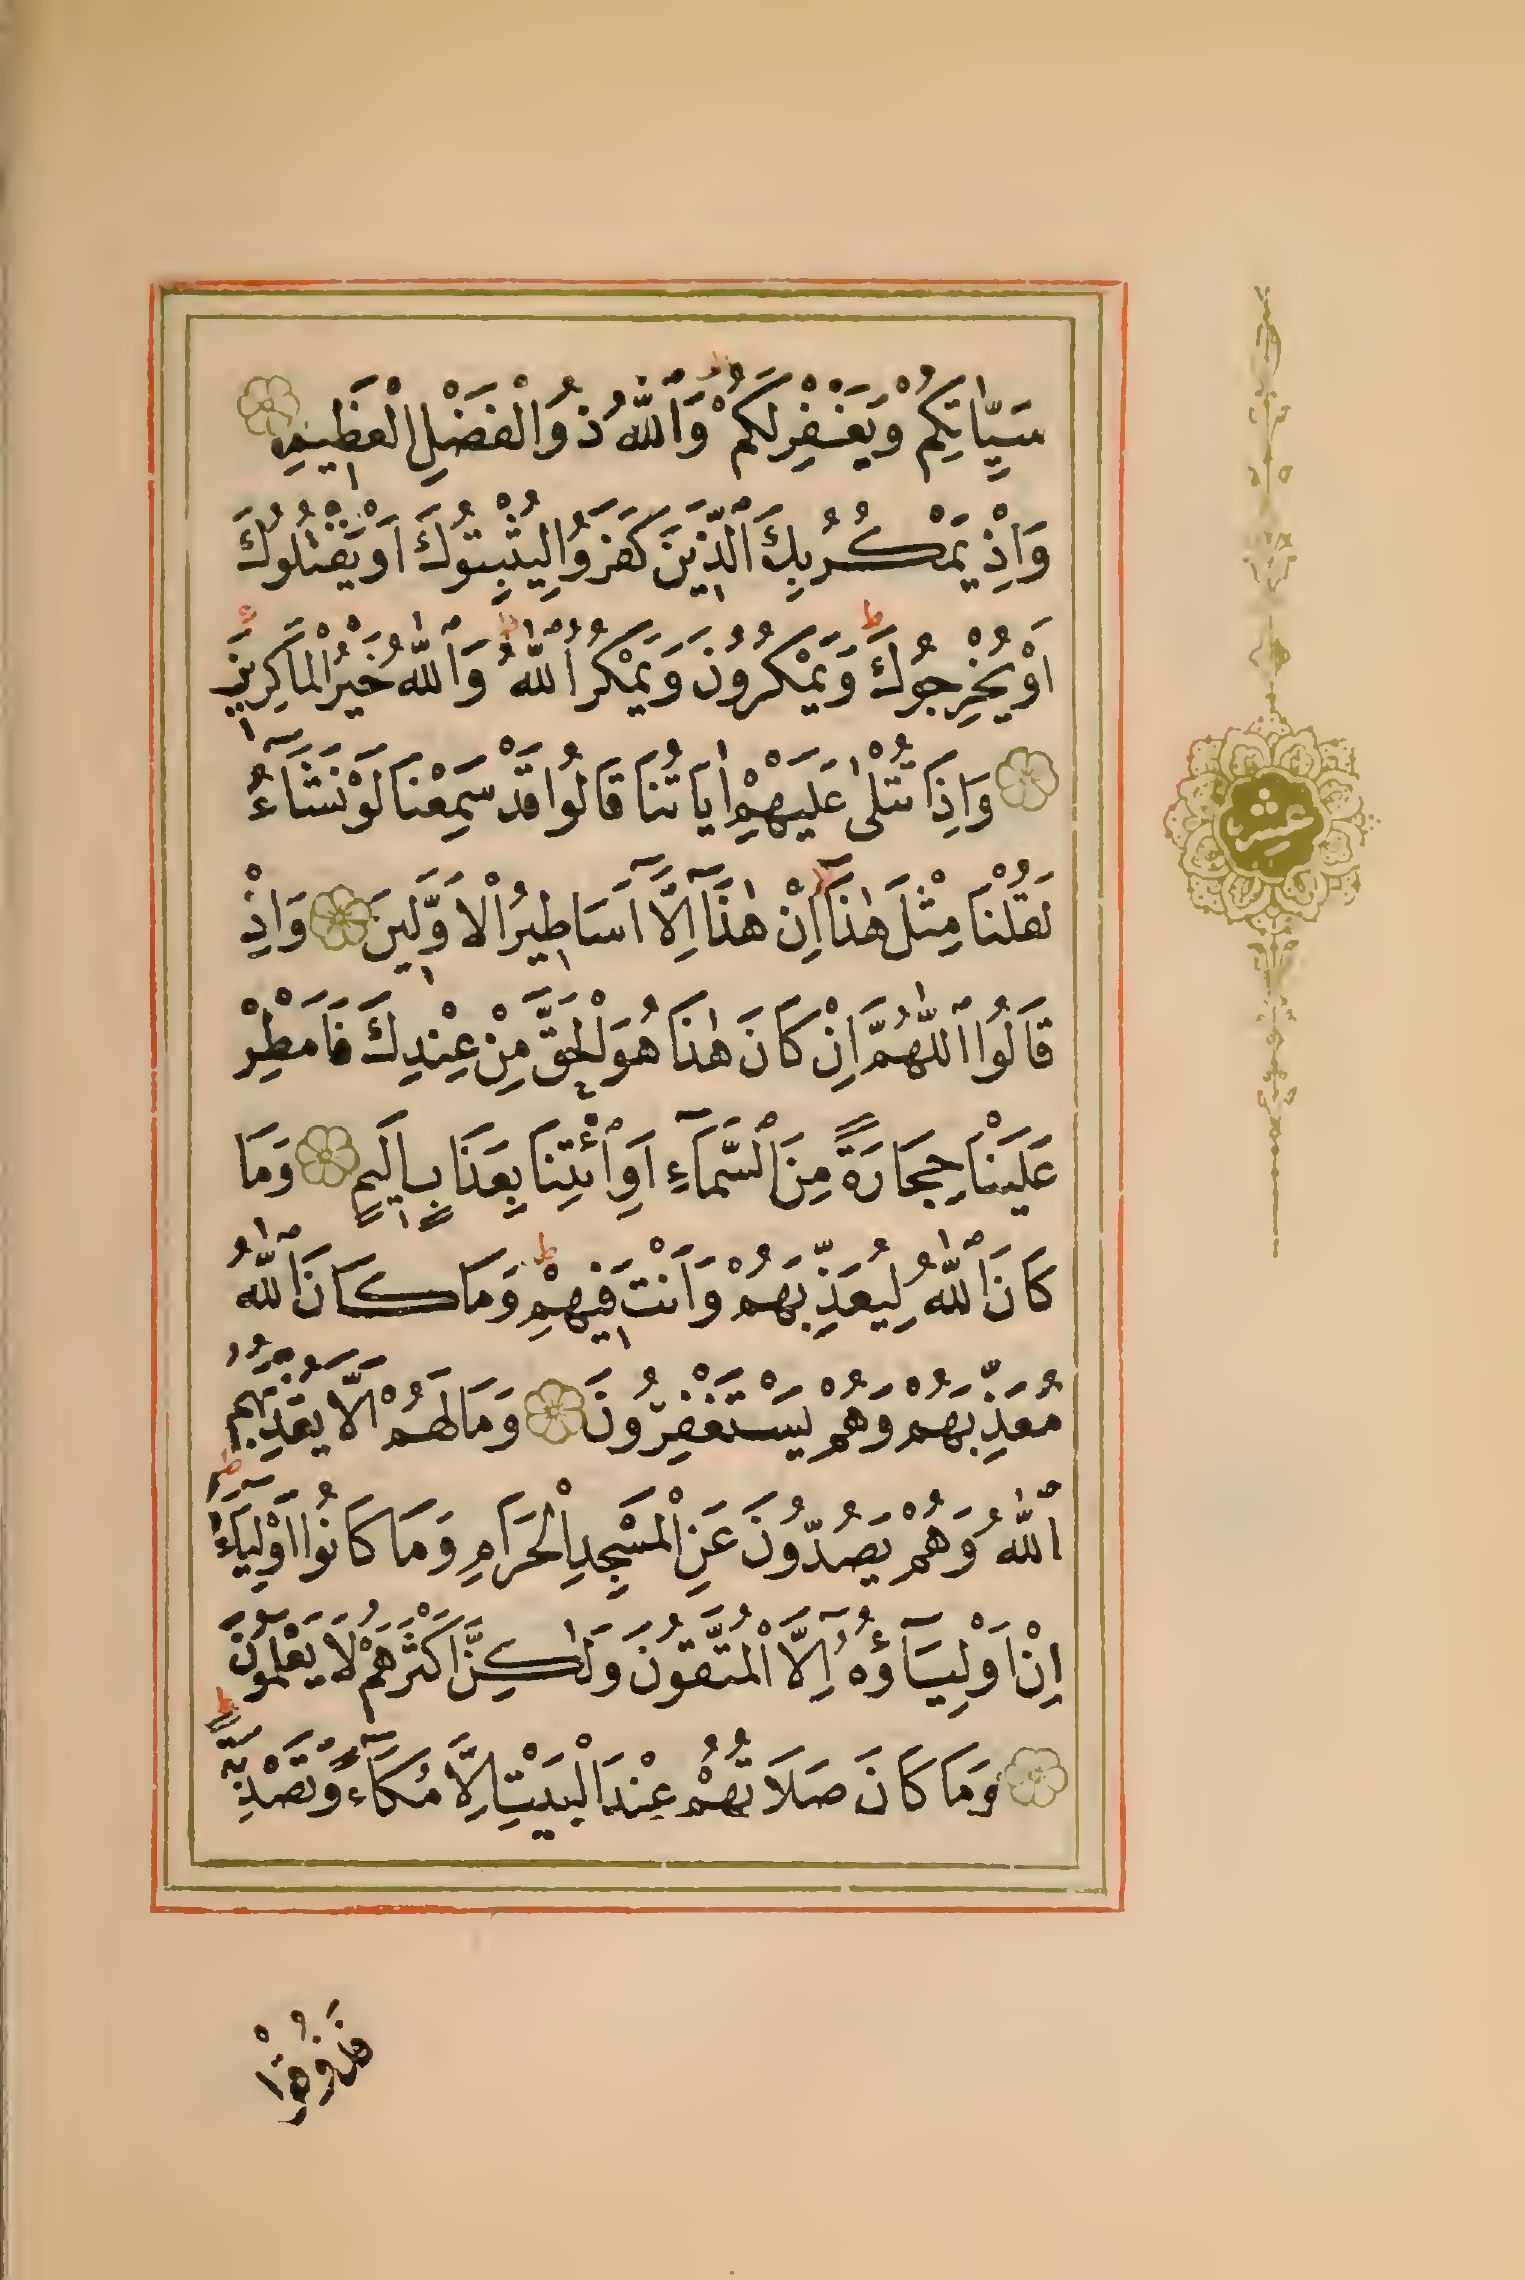 سَيِّاٰتِكُمْ وَيَغْفِرْ لَكُمْ وَٱللّٰهُ ذُوالْفَضْلِ الْعَظِيمِ
وَاِذْ يَمْكُرُ بِكَ ٱلَّذِينَ كَفَرَوُا لِيُثْبِتُوكَ اَوْ يَقْتُلُوكَ
اَوْ يُخْرِجُوكَ ط وَيَمْكُرُونَ وَيَمْكُرُ ٱللّٰهُ ط وَٱللّٰهُ خَيْرُ الْمَاكِرِينَ
وَاِذَا تُتْلٰى عَلَيْهِمْ اٰيَاتُنَا قَالُوا قَدْ سَمِعْنَا لَوْ نَشَآءُ
لَقُلْنَا مِثْلَ هٰذَآ اِنْ هٰذَآ اِلَّآ اَسَاطِيرُ الْاَوَّلِينَ وَاِذْ
قَالُوا ٱللّٰهُمَّ اِنْ كَانَ هٰذَا هُوَ لْحَقَّ مِنْ عِنْدِكَ فَاَمْطِرْ
عَلَيْنَا حِجَارَةً مِنَ ٱلسَّمَآءِ اَوِ ٱئْتِنَا بِعَذَابٍ اَلِيمٍ وَمَا
كَانَ ٱللّٰهُ لِيُعَذِّبَهُمْ وَاَنْتَ فِيهِمْ ط وَمَا كَانَ ٱللّٰهُ
مُعَذِّبَهُمْ وَهُمْ يَسْتَغْفِرُونَ وَمَا لَهُمْ اَلَّا يُعَذِّبَهُمُ
ٱللّٰهُ وَهُمْ يَصُدُّونَ عَنِ الْمَسْجِدِ اِلْحَرَامِ وَمَا كَانُوا اَوْلِيَآءَهُ ط
اِنْ اَوْلِيَآؤُهُٓ اِلَّا الْمُتَّقُونَ وَلٰكِنَّ اَكْثَرَهُمْ لَا يَعْلَمُونَ
وَمَا كَانَ صَلَاتُهُمْ عِنْدَ الْبَيْتِ اِلَّا مُكَآءً وَتَصْدِيَةً ط
عشر
فَذُوقُوا